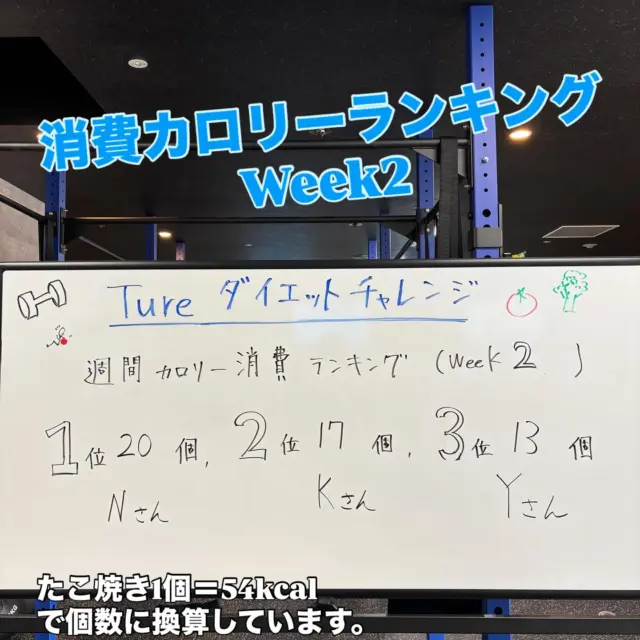 消費カロリーランキング
Week2
Ture ダイエットチャレンジ
週間カロリー消費ランキング (Week 2 )
1位 20 個, 2位 17 個, 3位 13 個
Nさん Kさん Yさん
たこ焼き1個＝54kcal
で個数に換算しています。